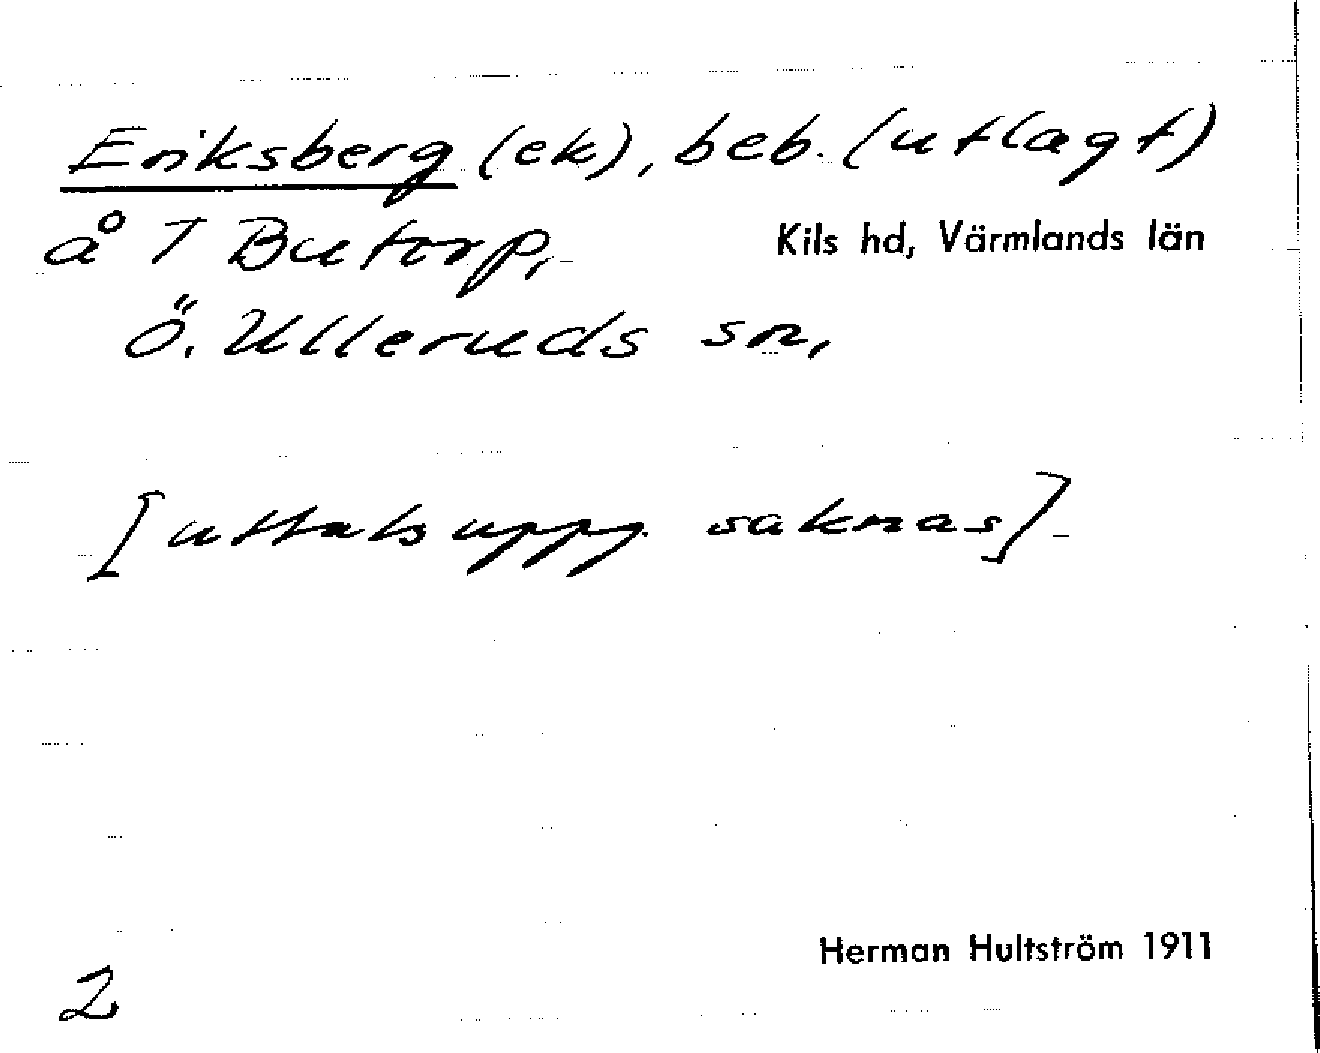 Eriksberg (ek), beb. (utlagt)
å 7 Butorp,
Kils hd, Värmlands län
Ö. Ulleruds sn,
[uttalsuppg. saknas]
Herman Hultström 1911
2